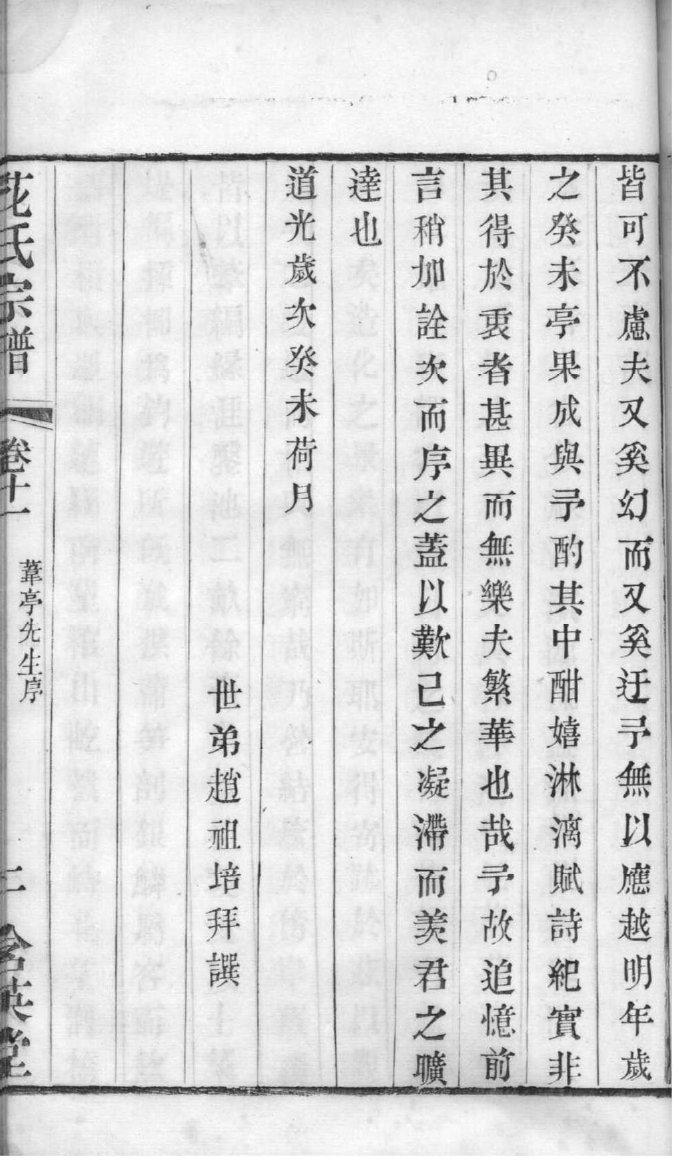 皆可不慮夫又奚幻而又奚迂予無以應越明年歲
之癸未亭果成與予酌其中酣嬉淋漓賦詩紀實非
其得於衷者甚異而無樂夫繁華也哉予故追憶前
言稍加詮次而序之蓋以歎己之凝滯而羡君之曠
達也
道光歲次癸未荷月
世弟趙祖培拜譔
花氏宗譜
卷十一
葦亭先生序
二
含英堂